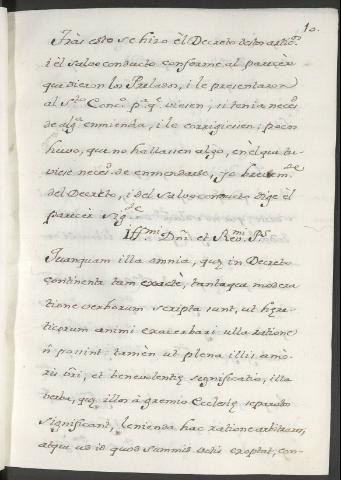 10.
Tràs esto se hizo èl Decreto destos artic.os
i èl salvo conducto conforme al parecèr
que dieron los Prelados, i le presentaron
al S.to Conc.o p.a q.e viesen, si tenia neces.
de alg.a enmienda, i le corrigiesen: pocos
huvo, que no hallasen algo, en èl que tu-
viese neces. de enmendarse, yo brevem.te
del Decreto, i del Salvo conducto dige èl
parecèr sig.te
Ill.mi Dñi, et Rev.mi P.s
Tamquam illa omnia, quę in Decreto
continentur tam exactè, tantaque modera
tione verborum scripta sunt, ut hęre-
ticorum animi exacerbari ulla ratione
ñ possint: tamèn ut plena illis amò-
ris ñri, et benevolentię significatio, illa
verba, quę illos à gremio Ecclesię separatos
significant, lenienda hac ratione arbitrarer,
atque ad id quod summis votis exoptat, con-